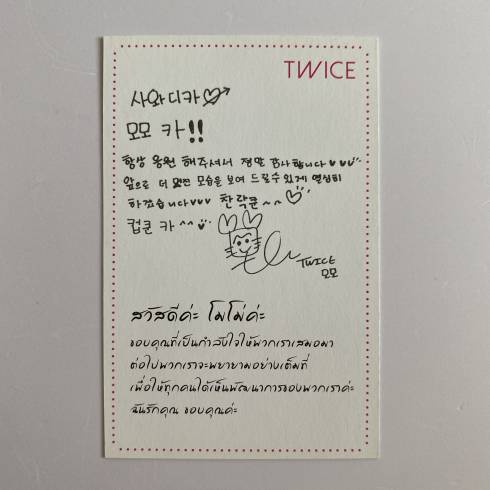 TWICE
사와디카
모모 카!!
항상 응원 해주셔서 정말 감사합니다 ♥♥
앞으로 더 멋진 모습을 보여 드릴수 있게 열심히
하겠습니다♥♥♥ 찬락쿤~~
컵쿤 카^^
TWICE
모모
สวัสดีค่ะ โมโม่ค่ะ
ขอบคุณที่เป็นกำลังใจให้พวกเราเสมอมา
ต่อไปพวกเราจะพยายามอย่างเต็มที่
เพื่อให้ทุกคนได้เห็นพัฒนาการของพวกเราค่ะ
ฉันรักคุณ ขอบคุณค่ะ